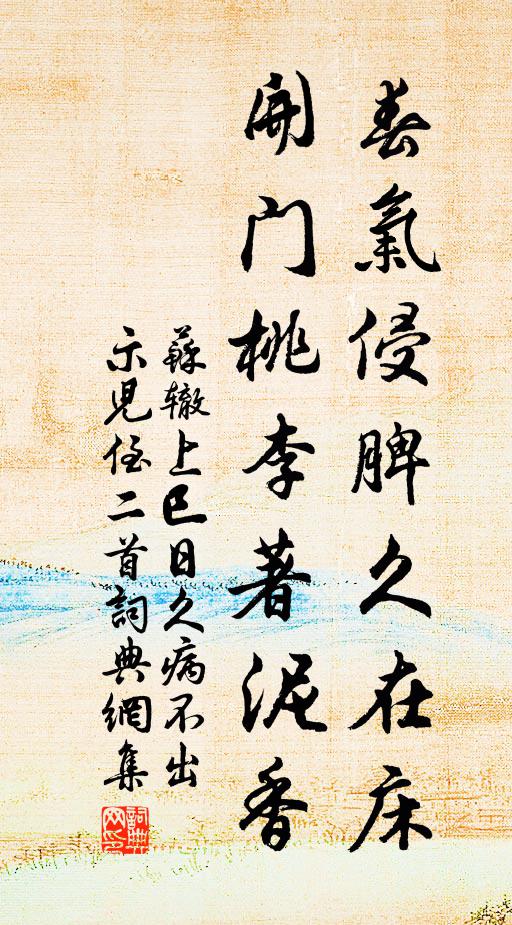 春氣侵脾久在床
開门桃李著泥香
蘇辙上巳日久病不出
示兒侄二首詞典網集
詞典网印